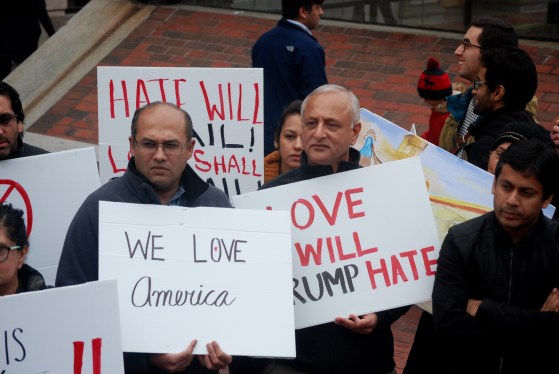 HATE WILL
SHALL
WE LOVE
America
LOVE
WILL
TRUMP HATE
IS
!!